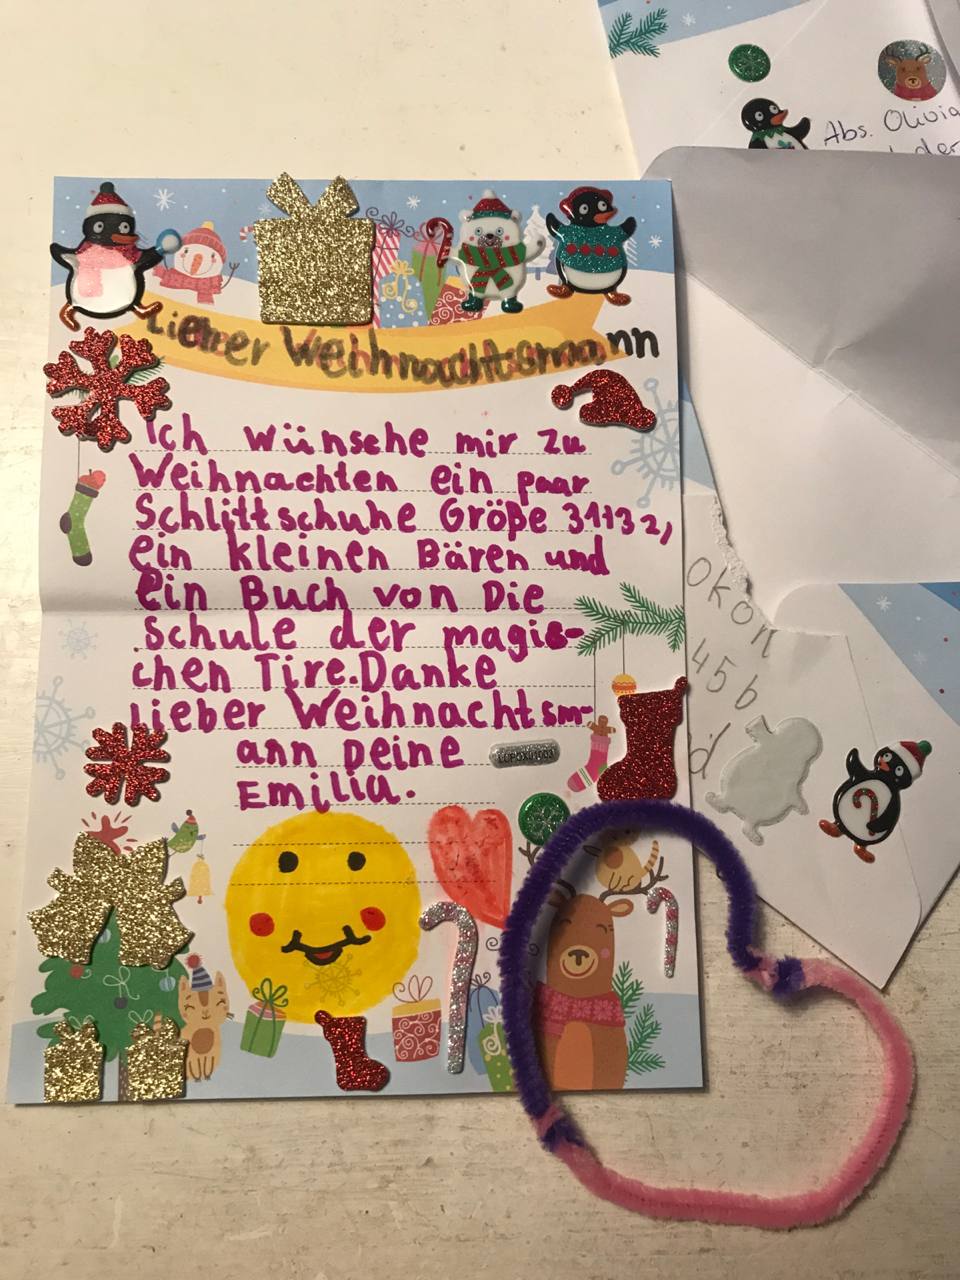 Abs. Olivia
Lieber Weihnachtssmann
Ich wünsche mir zu
Weihnachten ein paar
Schlittschuhe Größe 31+32,
ein kleinen Bären und
ein Buch von Die
Schule der magis-
chen Tire. Danke
lieber Weihnachtsm-
ann Deine
Emilia.
okon
45b
d